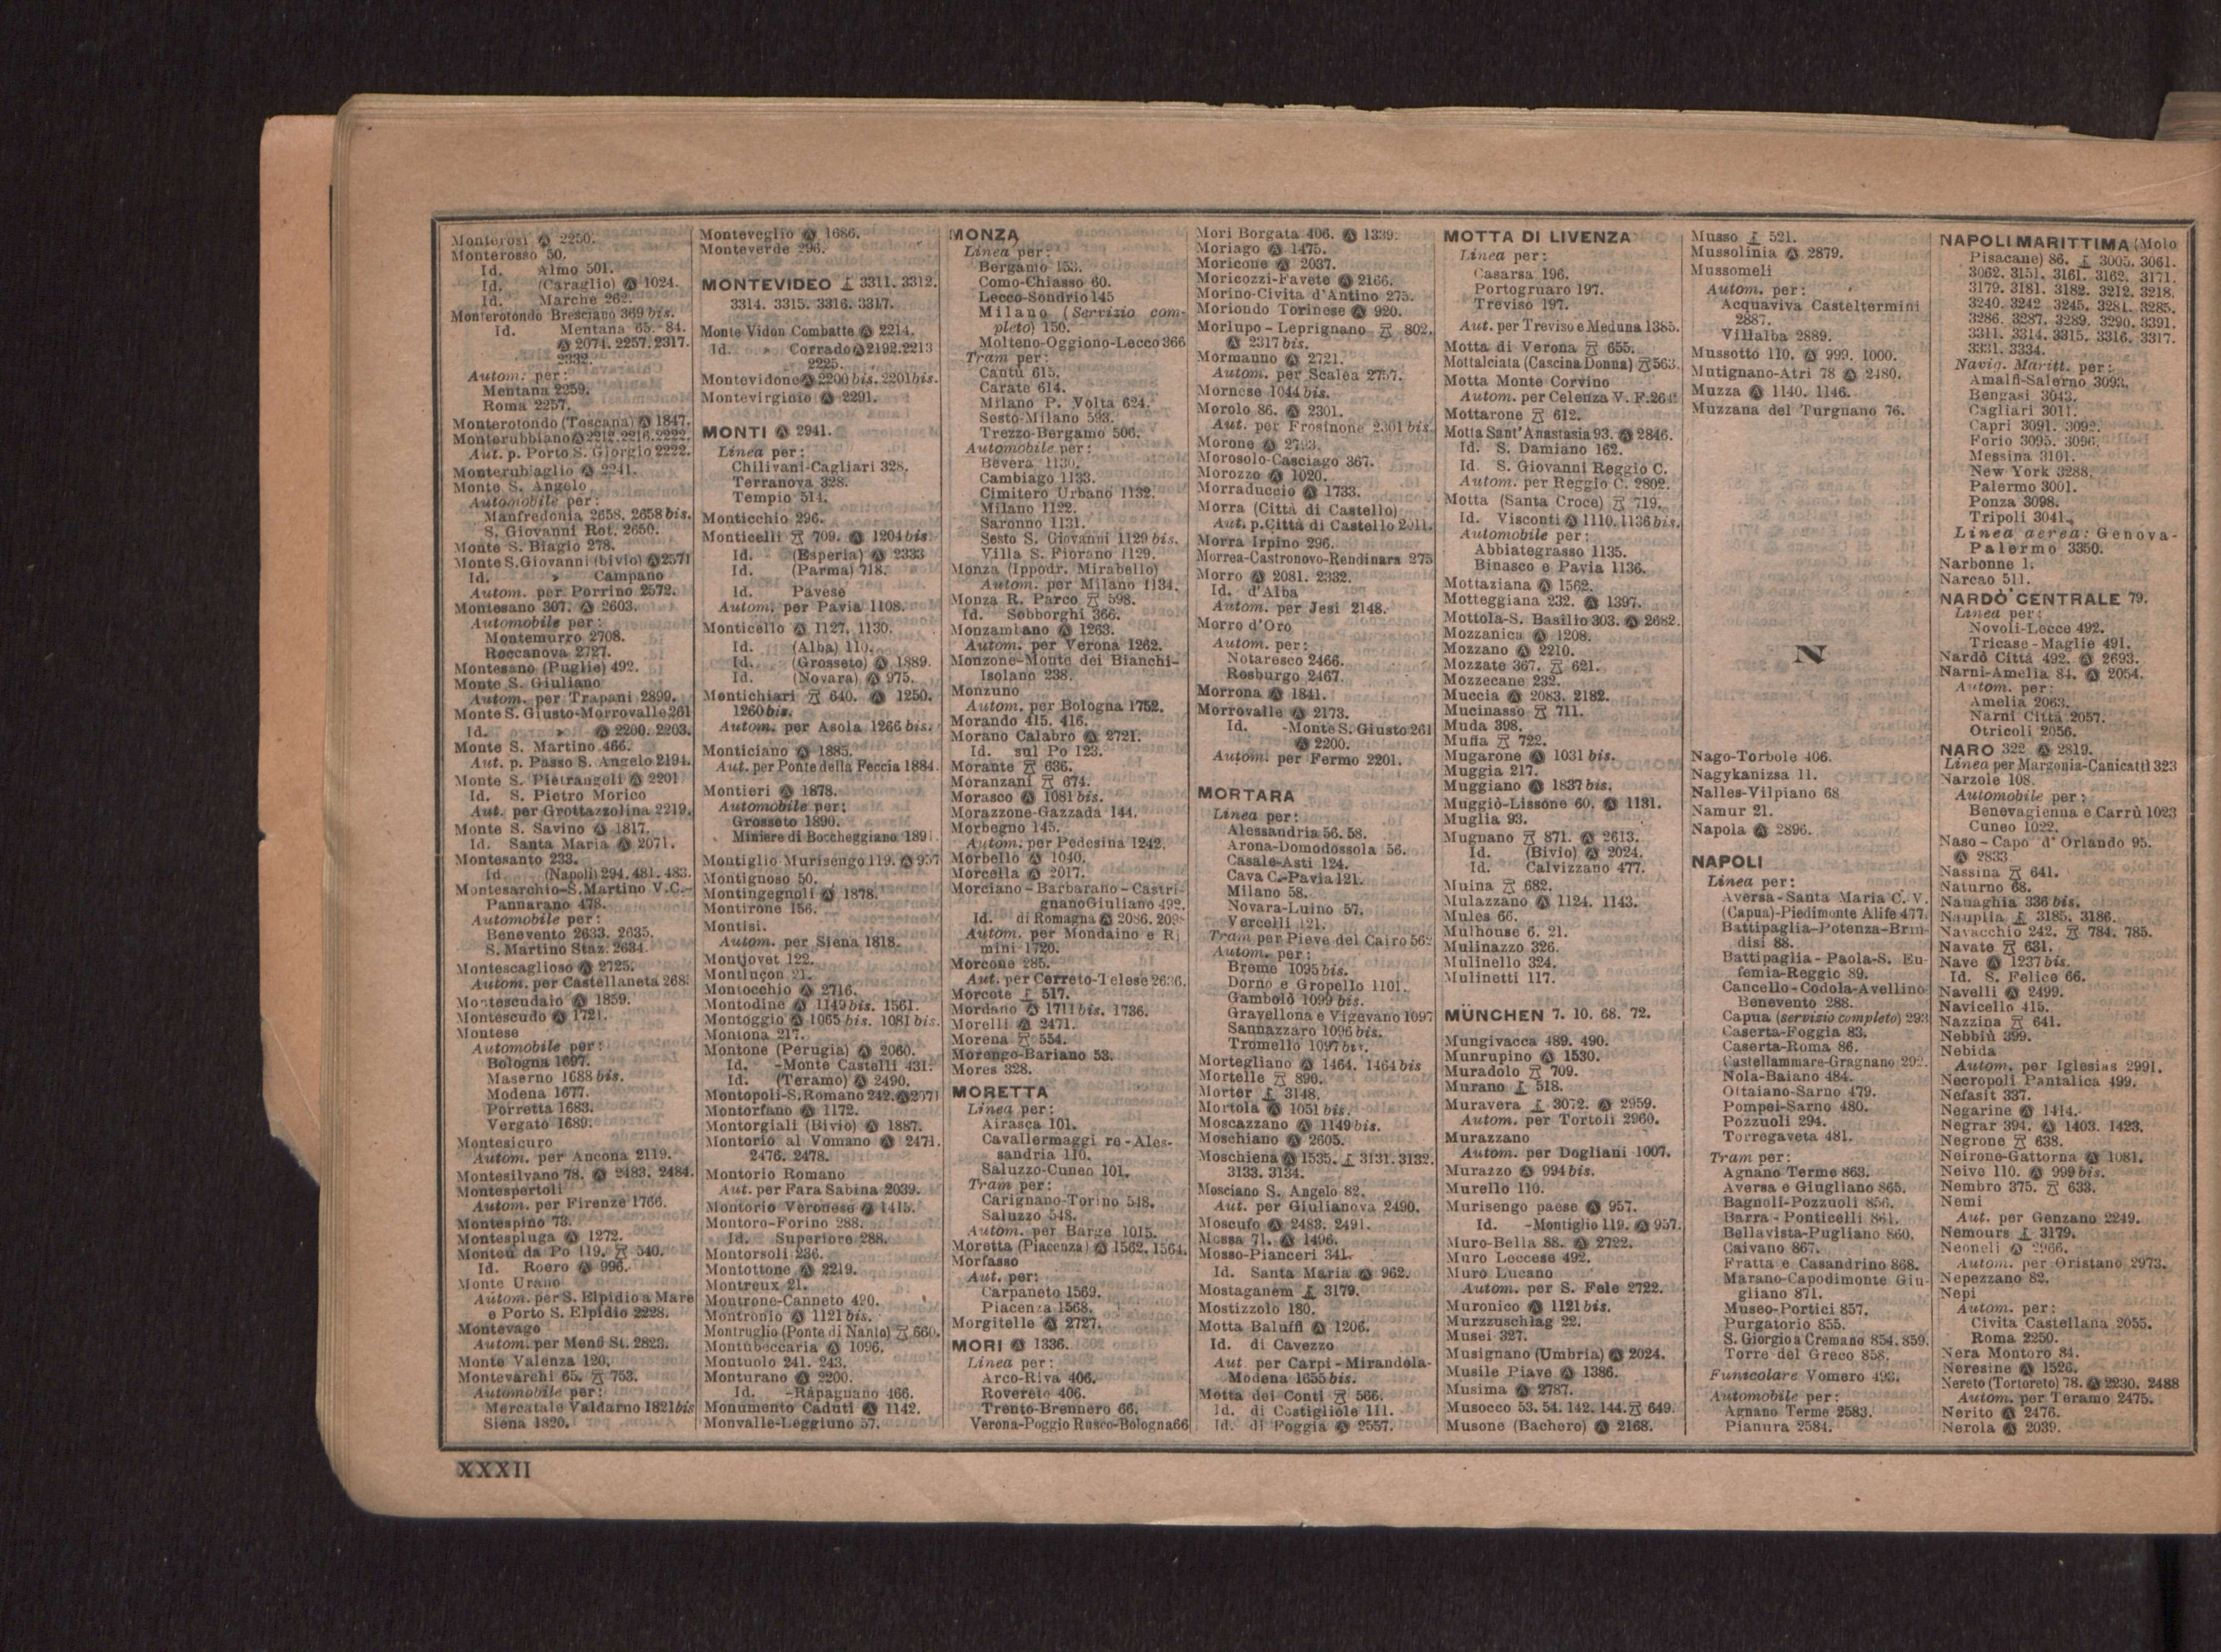 Monterosi Ⓐ 2250.
Monterosso 50.
Id. Almo 501.
Id. (Caraglio) Ⓐ 1024.
Id. Marche 262.
Monterotondo Bresciano 369 bis.
Id. Mentana 65. 84.
Ⓐ 2074. 2257. 2317.
2332.
Autom. per:
Mentana 2259.
Roma 2257.
Monterotondo (Toscana) Ⓐ 1847.
Monterubbiano Ⓐ 2212. 2216. 2222.
Aut. p. Porto S. Giorgio 2222.
Monterubiaglio Ⓐ 2241.
Monte S. Angelo
Automobile per:
Manfredonia 2658. 2658 bis.
S. Giovanni Rot. 2650.
Monte S. Biagio 278.
Monte S. Giovanni (bivio) Ⓐ 2571
Id. » Campano
Autom. per Porrino 2572.
Montesano 307. Ⓐ 2603.
Automobile per:
Montemurro 2708.
Roccanova 2727.
Montesano (Puglie) 492.
Monte S. Giuliano
Autom. per Trapani 2899.
Monte S. Giusto-Morrovalle 261
Id. » Ⓐ 2200. 2203.
Monte S. Martino 466.
Aut. p. Passo S. Angelo 2194.
Monte S. Pietrangeli Ⓐ 2201
Id. S. Pietro Morico
Aut. per Grottazzolina 2219.
Monte S. Savino Ⓐ 1817.
Id. Santa Maria Ⓐ 2071.
Montesanto 233.
Id (Napoli) 294. 481. 483.
Montesarchio-S. Martino V.C.-
Pannarano 478.
Automobile per:
Benevento 2633. 2635.
S. Martino Staz. 2634.
Montescaglioso Ⓐ 2725.
Autom. per Castellaneta
Montescudaio Ⓐ 1859.
Montescudo Ⓐ 1721.
Montese
Automobile per:
Bologna 1697.
Maserno 1688 bis.
Modena 1677.
Porretta 1683.
Vergato 1689.
Montesicuro
Autom. per Ancona 2119.
Montesilvano 78. Ⓐ 2483. 2484.
Montespertoli
Autom. per Firenze 1766.
Montespino 73.
Montespluga Ⓐ 1272.
Monteu da Po 119. 540.
Id. Roero Ⓐ 996.
Monte Urano
Autom. per S. Elpidio a Mare
e Porto S. Elpidio 2228.
Montevago
Autom. per Menfi St. 2823.
Monte Valenza 120.
Montevarchi 65. 753.
Automobile per:
Mercatale Valdarno 1821 bis
Siena 1820.
Monteveglio Ⓐ 1686.
Monteverde 296.
MONTEVIDEO 3311. 3312.
3314. 3315. 3316. 3317.
Monte Vidon Combatte Ⓐ 2214.
Id. » Corrado Ⓐ 2192. 2213
2225.
Montevidone Ⓐ 2200 bis. 2201 bis.
Montevirginio Ⓐ 2291.
MONTI Ⓐ 2941.
Linea per:
Chilivani-Cagliari 328.
Terranova 328.
Tempio 514.
Monticchio 296.
Monticelli 709. Ⓐ 1204 bis
Id. (Esperia) Ⓐ 2333
Id. (Parma) 718.
Id. Pavese
Autom. per Pavia 1108.
Monticello Ⓐ 1127. 1130.
Id. (Alba) 110.
Id. (Grosseto) Ⓐ 1889.
Id. (Novara) Ⓐ 975.
Montichiari 640. Ⓐ 1250.
1260 bis.
Autom. per Asola 1266 bis.
Monticiano Ⓐ 1885.
Aut. per Ponte della Feccia 1884.
Montieri Ⓐ 1878.
Automobile per:
Grosseto 1890.
Miniere di Boccheggiano 1891
Montiglio-Murisengo 119. Ⓐ 957
Montignoso 50.
Montingegnoli Ⓐ 1878.
Montirone 156.
Montisi.
Autom. per Siena 1818.
Montjovet 122.
Montluçon 21.
Montocchio Ⓐ 2716.
Montodine Ⓐ 1149 bis. 1561.
Montoggio Ⓐ 1065 bis. 1081 bis.
Montona 217.
Montone (Perugia) Ⓐ 2060.
Id. -Monte Castelli 431.
Id. (Teramo) Ⓐ 2490.
Montopoli-S. Romano 242. Ⓐ 2071
Montorfano Ⓐ 1172.
Montorgiali (Bivio) Ⓐ 1887.
Montorio al Vomano Ⓐ 2471.
2476. 2478.
Montorio Romano
Aut. per Fara Sabina 2039.
Montorio Veronese Ⓐ 1415.
Montoro-Forino 288.
Id. Superiore 288.
Montorsoli 236.
Montottone Ⓐ 2219.
Montreux 21.
Montrone-Canneto 490.
Montronio Ⓐ 1121 bis.
Montruglio (Ponte di Nanto) 660.
Montubeccaria Ⓐ 1096.
Montuolo 241. 243.
Monturano Ⓐ 2200.
Id. -Rapagnano 466.
Monumento Caduti Ⓐ 1142.
Monvalle-Leggiuno 57.
MONZA
Linea per:
Bergamo 153.
Como-Chiasso 60.
Lecco-Sondrio 145
Milano (Servizio com-
pleto) 150.
Molteno-Oggiono-Lecco 366
Tram per:
Cantù 615.
Carate 614.
Milano P. Volta 624.
Sesto-Milano 593.
Trezzo-Bergamo 506.
Automobile per:
Bevera 1130.
Cambiago 1133.
Cimitero Urbano 1132.
Milano 1122.
Saronno 1131.
Sesto S. Giovanni 1129 bis.
Villa S. Fiorano 1129.
Monza (Ippodr. Mirabello)
Autom. per Milano 1134.
Monza R. Parco 598.
Id. Sobborghi 366.
Monzambano Ⓐ 1263.
Autom. per Verona 1262.
Monzone-Monte dei Bianchi-
Isolano 238.
Monzuno
Autom. per Bologna 1752.
Morando 415. 416.
Morano Calabro Ⓐ 2721.
Id. sul Po 123.
Morante 636.
Moranzani 674.
Morasco Ⓐ 1081 bis.
Morazzone-Gazzada 144.
Morbegno 145.
Autom. per Pedesina 1242.
Morbello Ⓐ 1040.
Morcella Ⓐ 2017.
Morciano-Barbarano-Castri-
gnano Giuliano 492.
Id. di Romagna Ⓐ 2086.
Autom. per Mondaino e Ri
mini 1720.
Morcone 285.
Aut. per Cerreto-Telese
Morcote 517.
Mordano Ⓐ 1711 bis. 1736.
Morelli Ⓐ 2471.
Morena 554.
Morengo-Bariano 53.
Mores 328.
MORETTA
Linea per:
Airasca 101.
Cavallermaggiore-Ales-
sandria 110.
Saluzzo-Cuneo 101.
Tram per:
Carignano-Torino 548.
Saluzzo 548.
Autom. per Barge 1015.
Moretta (Piacenza) Ⓐ 1562. 1564.
Morfasso
Aut. per:
Carpaneto 1569.
Piacenza 1568.
Morgitelle Ⓐ 2727.
MORI Ⓐ 1336.
Linea per:
Arco-Riva 406.
Rovereto 406.
Trento-Brennero 66.
Verona-Poggio Rusco-Bologna 66
Mori Borgata 406. Ⓐ 1339.
Moriago Ⓐ 1475.
Moricone Ⓐ 2037.
Moricozzi-Favete Ⓐ 2166.
Morino-Civita d'Antino 275.
Moriondo Torinese Ⓐ 920.
Morlupo-Leprignano 802.
Ⓐ 2317 bis.
Mormanno Ⓐ 2721.
Autom. per Scalea 2757.
Mornese 1044 bis.
Morolo 86. Ⓐ 2301.
Aut. per Frosinone 2301 bis.
Morone Ⓐ
Morosolo-Casciago 367.
Morozzo Ⓐ 1020.
Morraduccio Ⓐ 1733.
Morra (Città di Castello)
Aut. p. Città di Castello 2011.
Morra Irpino 296.
Morrea-Castronovo-Rendinara 275
Morro Ⓐ 2081. 2332.
Id. d'Alba
Autom. per Jesi 2148.
Morro d'Oro
Autom. per:
Notaresco 2466.
Rosburgo 2467.
Morrona Ⓐ 1841.
Morrovalle Ⓐ 2173.
Id. -Monte S. Giusto 261
Ⓐ 2200.
Autom. per Fermo 2201.
MORTARA
Linea per:
Alessandria 56. 58.
Arona-Domodossola 56.
Casale-Asti 124.
Cava C.-Pavia 121.
Milano 58.
Novara-Luino 57.
Vercelli 121.
Tram per Pieve del Cairo 562
Autom. per:
Breme 1095 bis.
Dorno e Gropello 1101.
Gambolò 1099 bis.
Gravellona e Vigevano 1097
Sannazzaro 1096 bis.
Tromello 1097 bis.
Mortegliano Ⓐ 1464. 1464 bis
Mortelle 890.
Morter 3148.
Mortola Ⓐ 1051 bis.
Moscazzano Ⓐ 1149 bis.
Moschiano Ⓐ 2605.
Moschiena Ⓐ 1535. 3131. 3132.
3133. 3134.
Mosciano S. Angelo 82.
Aut. per Giulianova 2490.
Moscufo Ⓐ 2483. 2491.
Mossa 71. Ⓐ 1496.
Mosso-Pianceri 341.
Id. Santa Maria Ⓐ 962.
Mostaganem 3179.
Mostizzolo 180.
Motta Baluffi Ⓐ 1206.
Id. di Cavezzo
Aut. per Carpi-Mirandola-
Modena 1655 bis.
Motta dei Conti 566.
Id. di Costigliole 111.
Id. di Foggia Ⓐ 2557.
MOTTA DI LIVENZA
Linea per:
Casarsa 196.
Portogruaro 197.
Treviso 197.
Aut. per Treviso e Meduna 1385.
Motta di Verona 655.
Mottalciata (Cascina Donna) 563.
Motta Monte Corvino
Autom. per Celenza V. F.
Mottarone 612.
Motta Sant'Anastasia 93. Ⓐ 2846.
Id. S. Damiano 162.
Id. S. Giovanni Reggio C.
Autom. per Reggio C. 2802.
Motta (Santa Croce) 719.
Id. Visconti Ⓐ 1110. 1136 bis.
Automobile per:
Abbiategrasso 1135.
Binasco e Pavia 1136.
Mottaziana Ⓐ 1562.
Motteggiana 232. Ⓐ 1397.
Mottola-S. Basilio 303. Ⓐ 2682.
Mozzanica Ⓐ 1208.
Mozzano Ⓐ 2210.
Mozzate 367. 621.
Mozzecane 232.
Muccia Ⓐ 2083. 2182.
Mucinasso 711.
Muda 398.
Muffa 722.
Mugarone Ⓐ 1031 bis.
Muggia 217.
Muggiano Ⓐ 1837 bis.
Muggiò-Lissone 60. Ⓐ 1131.
Muglia 93.
Mugnano 871. Ⓐ 2613.
Id. (Bivio) Ⓐ 2024.
Id. Calvizzano 477.
Muina 682.
Mulazzano Ⓐ 1124. 1143.
Mules 66.
Mulhouse 6. 21.
Mulinazzo 326.
Mulinello 324.
Mulinetti 117.
MÜNCHEN 7. 10. 68. 72.
Mungivacca 489. 490.
Munrupino Ⓐ 1530.
Muradolo 709.
Murano 518.
Muravera 3072. Ⓐ 2959.
Autom. per Tortolì 2960.
Murazzano
Autom. per Dogliani 1007.
Murazzo Ⓐ 994 bis.
Murello 110.
Murisengo paese Ⓐ 957.
Id. -Montiglio 119. Ⓐ 957.
Muro-Bella 88. Ⓐ 2722.
Muro Leccese 492.
Muro Lucano
Autom. per S. Fele 2722.
Muronico Ⓐ 1121 bis.
Murzzuschlag 22.
Musei 327.
Musignano (Umbria) Ⓐ 2024.
Musile Piave Ⓐ 1386.
Musima Ⓐ 2787.
Musocco 53. 54. 142. 144. 649.
Musone (Bachero) Ⓐ 2168.
Musso 521.
Mussolinia Ⓐ 2879.
Mussomeli
Autom. per:
Acquaviva Casteltermini
2887.
Villalba 2889.
Mussotto 110. Ⓐ 999. 1000.
Mutignano-Atri 78 Ⓐ 2480.
Muzza Ⓐ 1140. 1146.
Muzzana del Turgnano 76.
N
Nago-Torbole 406.
Nagykanizsa 11.
Nalles-Vilpiano 68
Namur 21.
Napola Ⓐ 2896.
NAPOLI
Linea per:
Aversa-Santa Maria C. V.
(Capua)-Piedimonte Alife 477.
Battipaglia-Potenza-Brin-
disi 88.
Battipaglia-Paola-S. Eu-
femia-Reggio 89.
Cancello-Codola-Avellino
Benevento 288.
Capua (servizio completo) 293
Caserta-Foggia 83.
Caserta-Roma 86.
Castellammare-Gragnano 292.
Nola-Baiano 484.
Ottaiano-Sarno 479.
Pompei-Sarno 480.
Pozzuoli 294.
Torregaveta 481.
Tram per:
Agnano Terme 863.
Aversa e Giugliano 865.
Bagnoli-Pozzuoli 856.
Barra-Ponticelli 861.
Bellavista-Pugliano 860.
Caivano 867.
Fratta e Casandrino 868.
Marano-Capodimonte Giu-
gliano 871.
Museo-Portici 857.
Purgatorio 855.
S. Giorgio a Cremano 854. 859.
Torre del Greco 858.
Funicolare Vomero 493.
Automobile per:
Agnano Terme 2583.
Pianura 2584.
NAPOLI MARITTIMA (Molo
Pisacane) 86. 3005. 3061.
3062. 3151. 3161. 3162. 3171.
3179. 3181. 3182. 3212. 3218.
3240. 3242 3245. 3281. 3285.
3286. 3287. 3289. 3290. 3391.
3311. 3314. 3315. 3316. 3317.
3331. 3334.
Navig. Maritt. per:
Amalfi-Salerno 3093.
Bengasi 3043.
Cagliari 3011.
Capri 3091. 3092.
Forio 3095. 3096.
Messina 3101.
New York 3288.
Palermo 3001.
Ponza 3098.
Tripoli 3041.
Linea aerea: Genova-
Palermo 3350.
Narbonne 1.
Narcao 511.
NARDÒ CENTRALE 79.
Linea per:
Novoli-Lecce 492.
Tricase-Maglie 491.
Nardò Città 492. Ⓐ 2693.
Narni-Amelia 84. Ⓐ 2054.
Autom. per:
Amelia 2063.
Narni Città 2057.
Otricoli 2056.
NARO 322 Ⓐ 2819.
Linea per Margonia-Canicattì 323
Narzole 108.
Automobile per:
Benevagienna e Carrù 1023
Cuneo 1022.
Naso-Capo d'Orlando 95.
Ⓐ 2833
Nassina 641.
Naturno 68.
Nauaghia 336 bis.
Nauplia 3185. 3186.
Navacchio 242. 784. 785.
Navate 631.
Nave Ⓐ 1237 bis.
Id. S. Felice 66.
Navelli Ⓐ 2499.
Navicello 415.
Nazzina 641.
Nebbiù 399.
Nebida
Autom. per Iglesias 2991.
Necropoli Pantalica 499.
Nefasit 337.
Negarine Ⓐ 1414.
Negrar 394. Ⓐ 1403. 1423.
Negrone 638.
Neirone-Gattorna Ⓐ 1081.
Neive 110. Ⓐ 999 bis.
Nembro 375. 633.
Nemi
Aut. per Genzano 2249.
Nemours 3179.
Neoneli Ⓐ 2966.
Autom. per Oristano 2973.
Nepezzano 82.
Nepi
Autom. per:
Civita Castellana 2055.
Roma 2250.
Nera Montoro 84.
Neresine Ⓐ 1526.
Nereto (Tortoreto) 78. Ⓐ 2230. 2488
Autom. per Teramo 2475.
Nerito Ⓐ 2476.
Nerola Ⓐ 2039.
XXXII